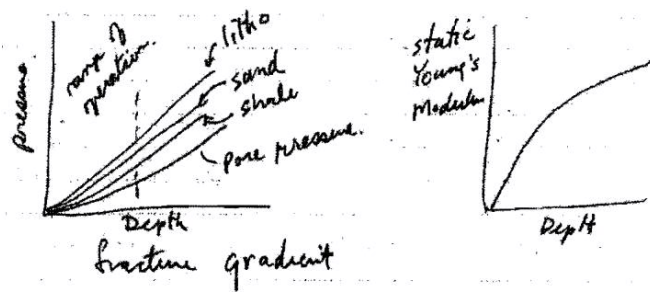 pressure
range of
operation
litho
sand
shale
pore pressure.
Depth
fracture gradient
static
Young's
Modulus
Depth